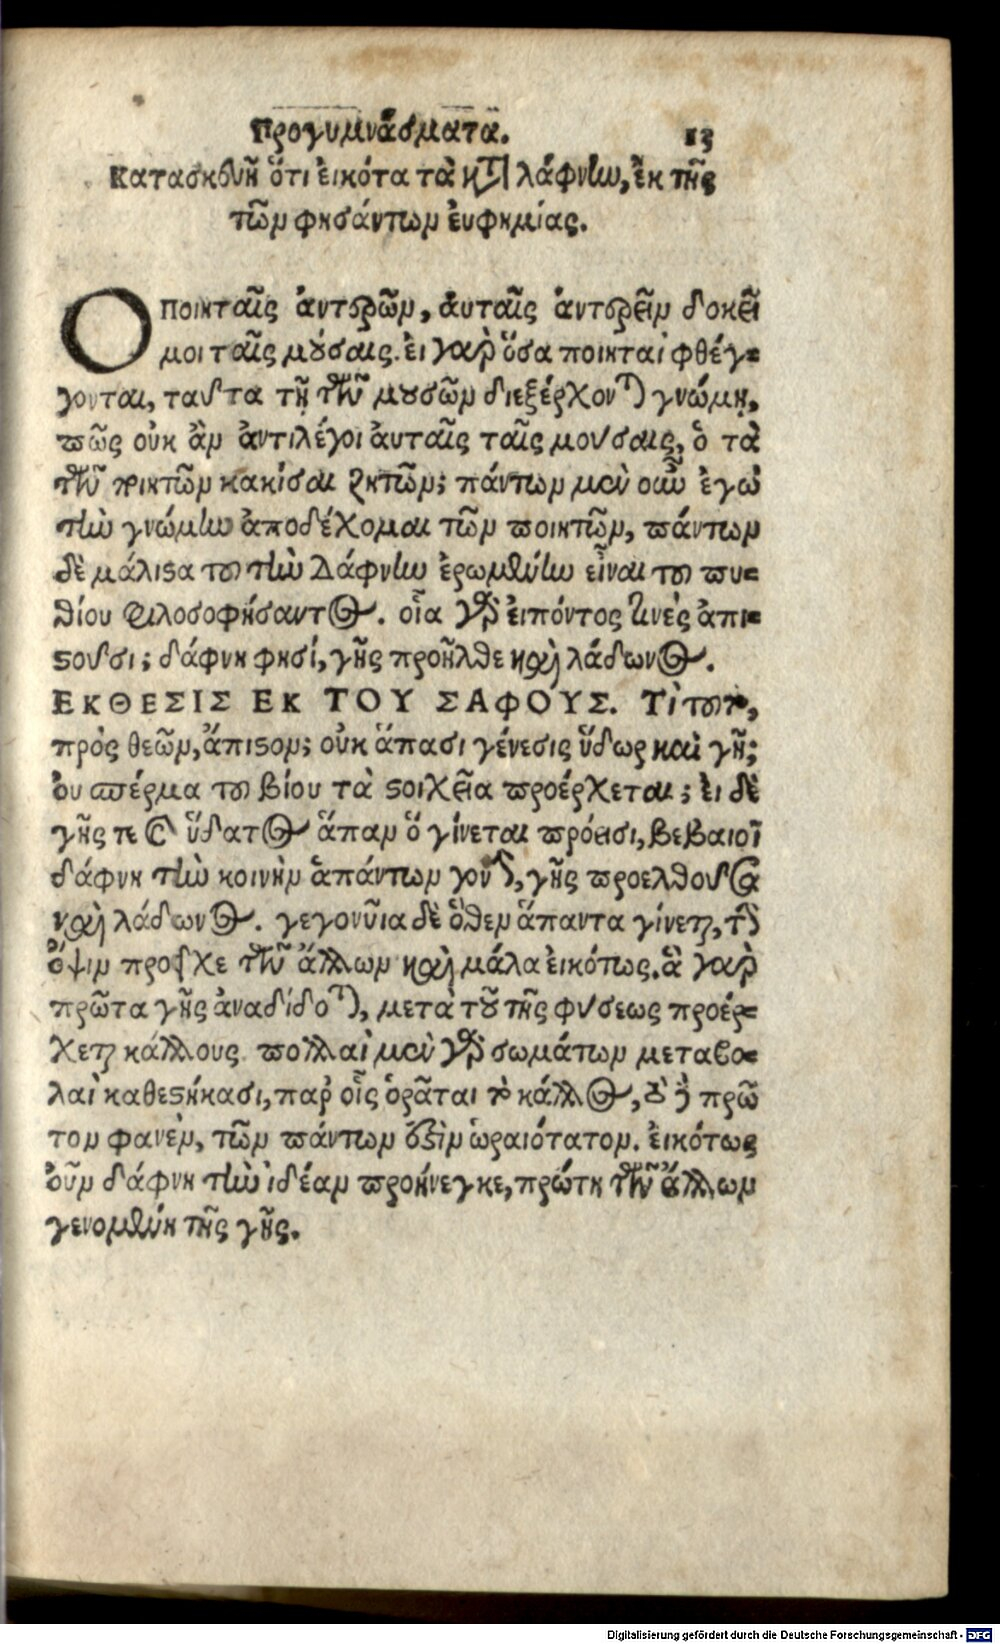 Προγυμνάσματα. 13
Κατασκευὴ ὅτι εἰκότα τὰ κατὰ λάφνlω, ἐκ τῆς
τῶν φησάντων ἐυφημίας.
Ο ποιηταῖς ἀντερῶν, ἀυταῖς ἀντερεῖν δοκεῖ
μοι ταῖς μούσαις. εἰ γαρ ὅσα ποιηταὶ φθέγ=
γονται, ταῦτα τῇ τῶν μουσῶν διεξέρχονται γνώμῃ,
πῶς οὐκ ἂν ἀντιλέγοι ἀυταῖς ταῖς μούσαις, ὁ τὰ
τῶν ποιητῶν κακίσαι ζητῶν; πάντων μὲν οὖν ἐγὼ
τὴν γνώμην ἀποδέχομαι τῶν ποιητῶν, πάντων
δὲ μάλιστα του τὴν Δάφνην ἐρωμένην εἶναι του πυ=
θίου φιλοσοφήσαντος. οἷα γὰρ εἰπόντος τινὲς ἀπι=
στοῦσι; δάφνη φησί, γῆς προῆλθε καὶ λάδωνος.
ΕΚΘΕΣΙΣ ΕΚ ΤΟΥ ΣΑΦΟΥΣ. Τὶ τουτο,
πρὸς θεῶν, ἄπιστον; οὐκ ἅπασι γένεσις ὕδωρ καὶ γῆ;
ὀυ σπέρμα του βίου τὰ στοιχεῖα προέρχεται; ἐι δὲ
γῆς τε καὶ ὕδατος ἅπαν ὅ γίνεται πρόεισι, βεβαιοῖ
δάφνη τὴν κοινὴν ἁπάντων γονὴν, γῆς προελθοῦσα
καὶ λάδωνος. γεγονῦια δὲ ὅθεν ἅπαντα γίνεται, τὴν
ὄψιν προῦχε τῶν ἄλλων καὶ μάλα εἰκότως. ἃ γαρ
πρῶτα γῆς ἀναδίδοται, μετὰ τοῦ τῆς φύσεως προέρ=
χεται κάλλους. πολλαὶ μὲν γὰρ σωμάτων μεταβο=
λαὶ καθεστήκασι, παρ οἷς ὁρᾶται τὸ κάλλος, τὸ δὲ πρῶ
τον φανὲν, τῶν πάντων ἐστὶν ὡραιότατον. ἐικότως
ὀῦν δάφνη τὴν ἰδέαν προήνεγκε, πρώτη τῶν ἄλλων
γενομένη τῆς γῆς.
Digitalisierung gefördert durch die Deutsche Forschungsgemeinschaft - DFG